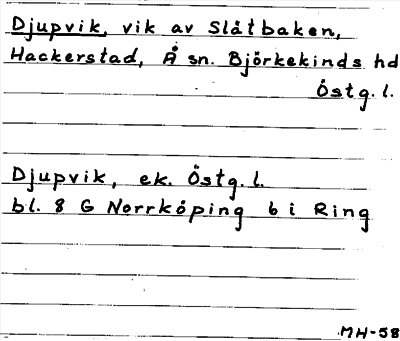 Djupvik, vik av Slåtbaken,
Hackerstad, Å sn. Björkekinds hd
Östg.l.
Djupvik, ek. Östg.l.
bl. 8 G Norrköping 6 i Ring
MH-58